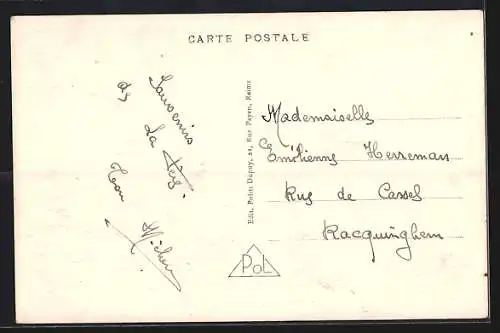 CARTE POSTALE
Souvenirs
de
La
Ton
Michel
Edit. Petit Dupuy, 22, Rue Payen, Reims
Mademoiselle
Emilienne Herreman
Rue de Cassel
Racquinghem
POL